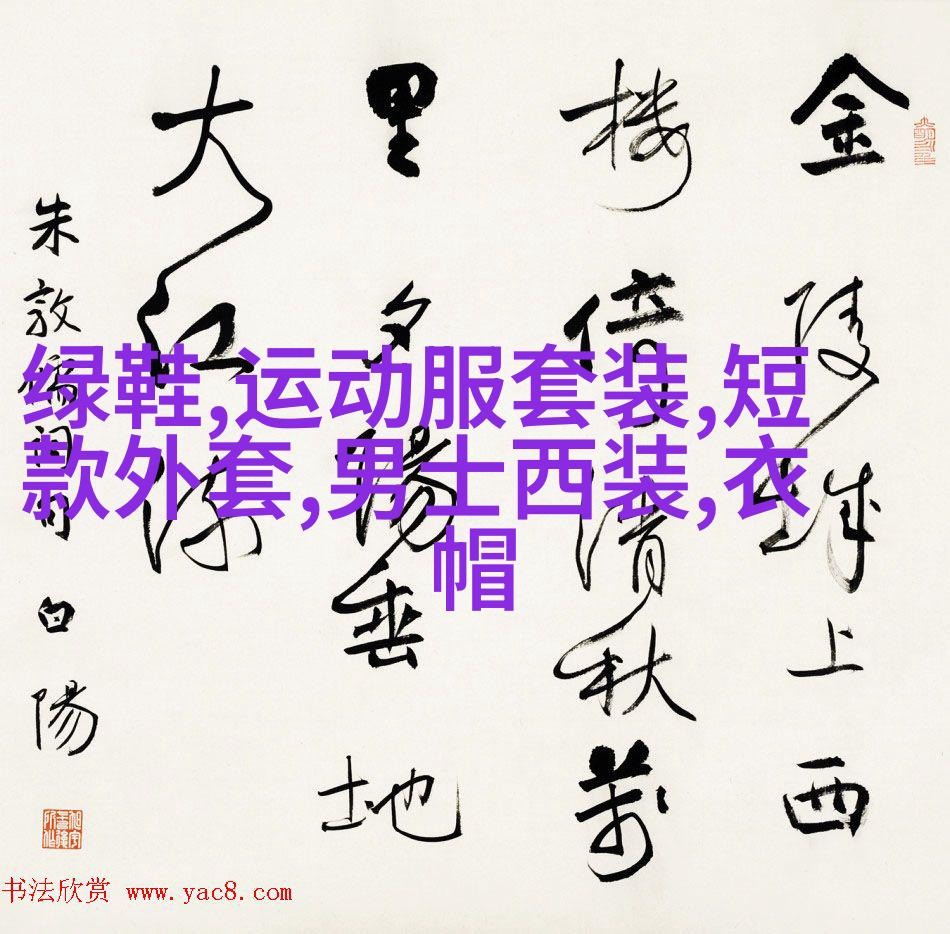 金陵城上西
楼倚清秋萬
里夕陽垂地
大江流
朱敦儒詞句 白陽
绿鞋,运动服套装,短
款外套,男士西装,衣
帽
书法欣赏 www.yac8.com